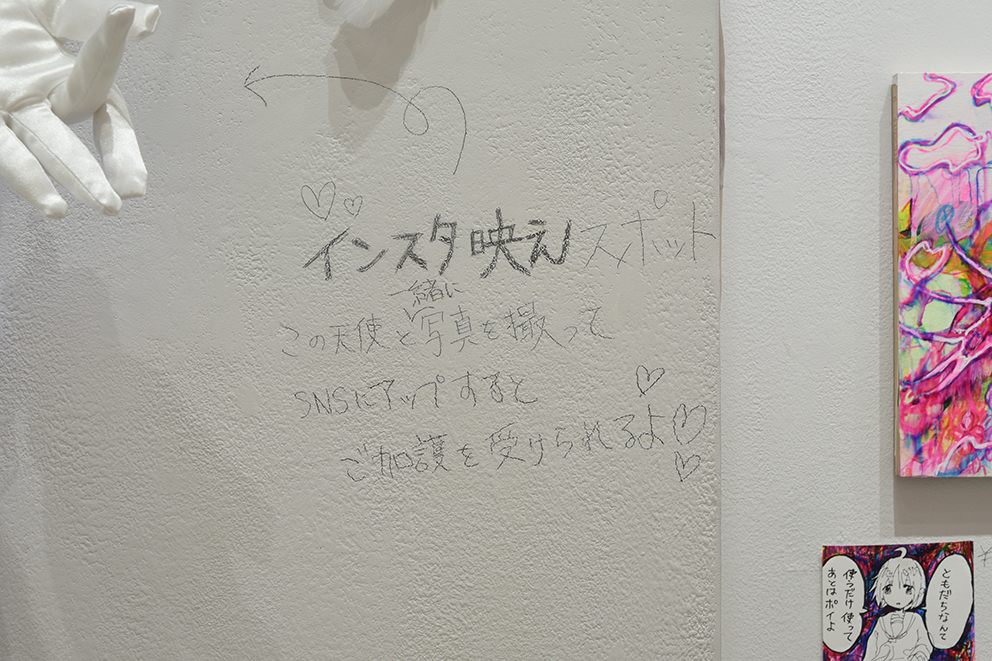 インスタ映えスポット
一緒に
この天使と写真を撮って
SNSにアップすると
ご加護を受けられるよ
ともだちなんて
使うだけ使って
あとはポイよ
¥